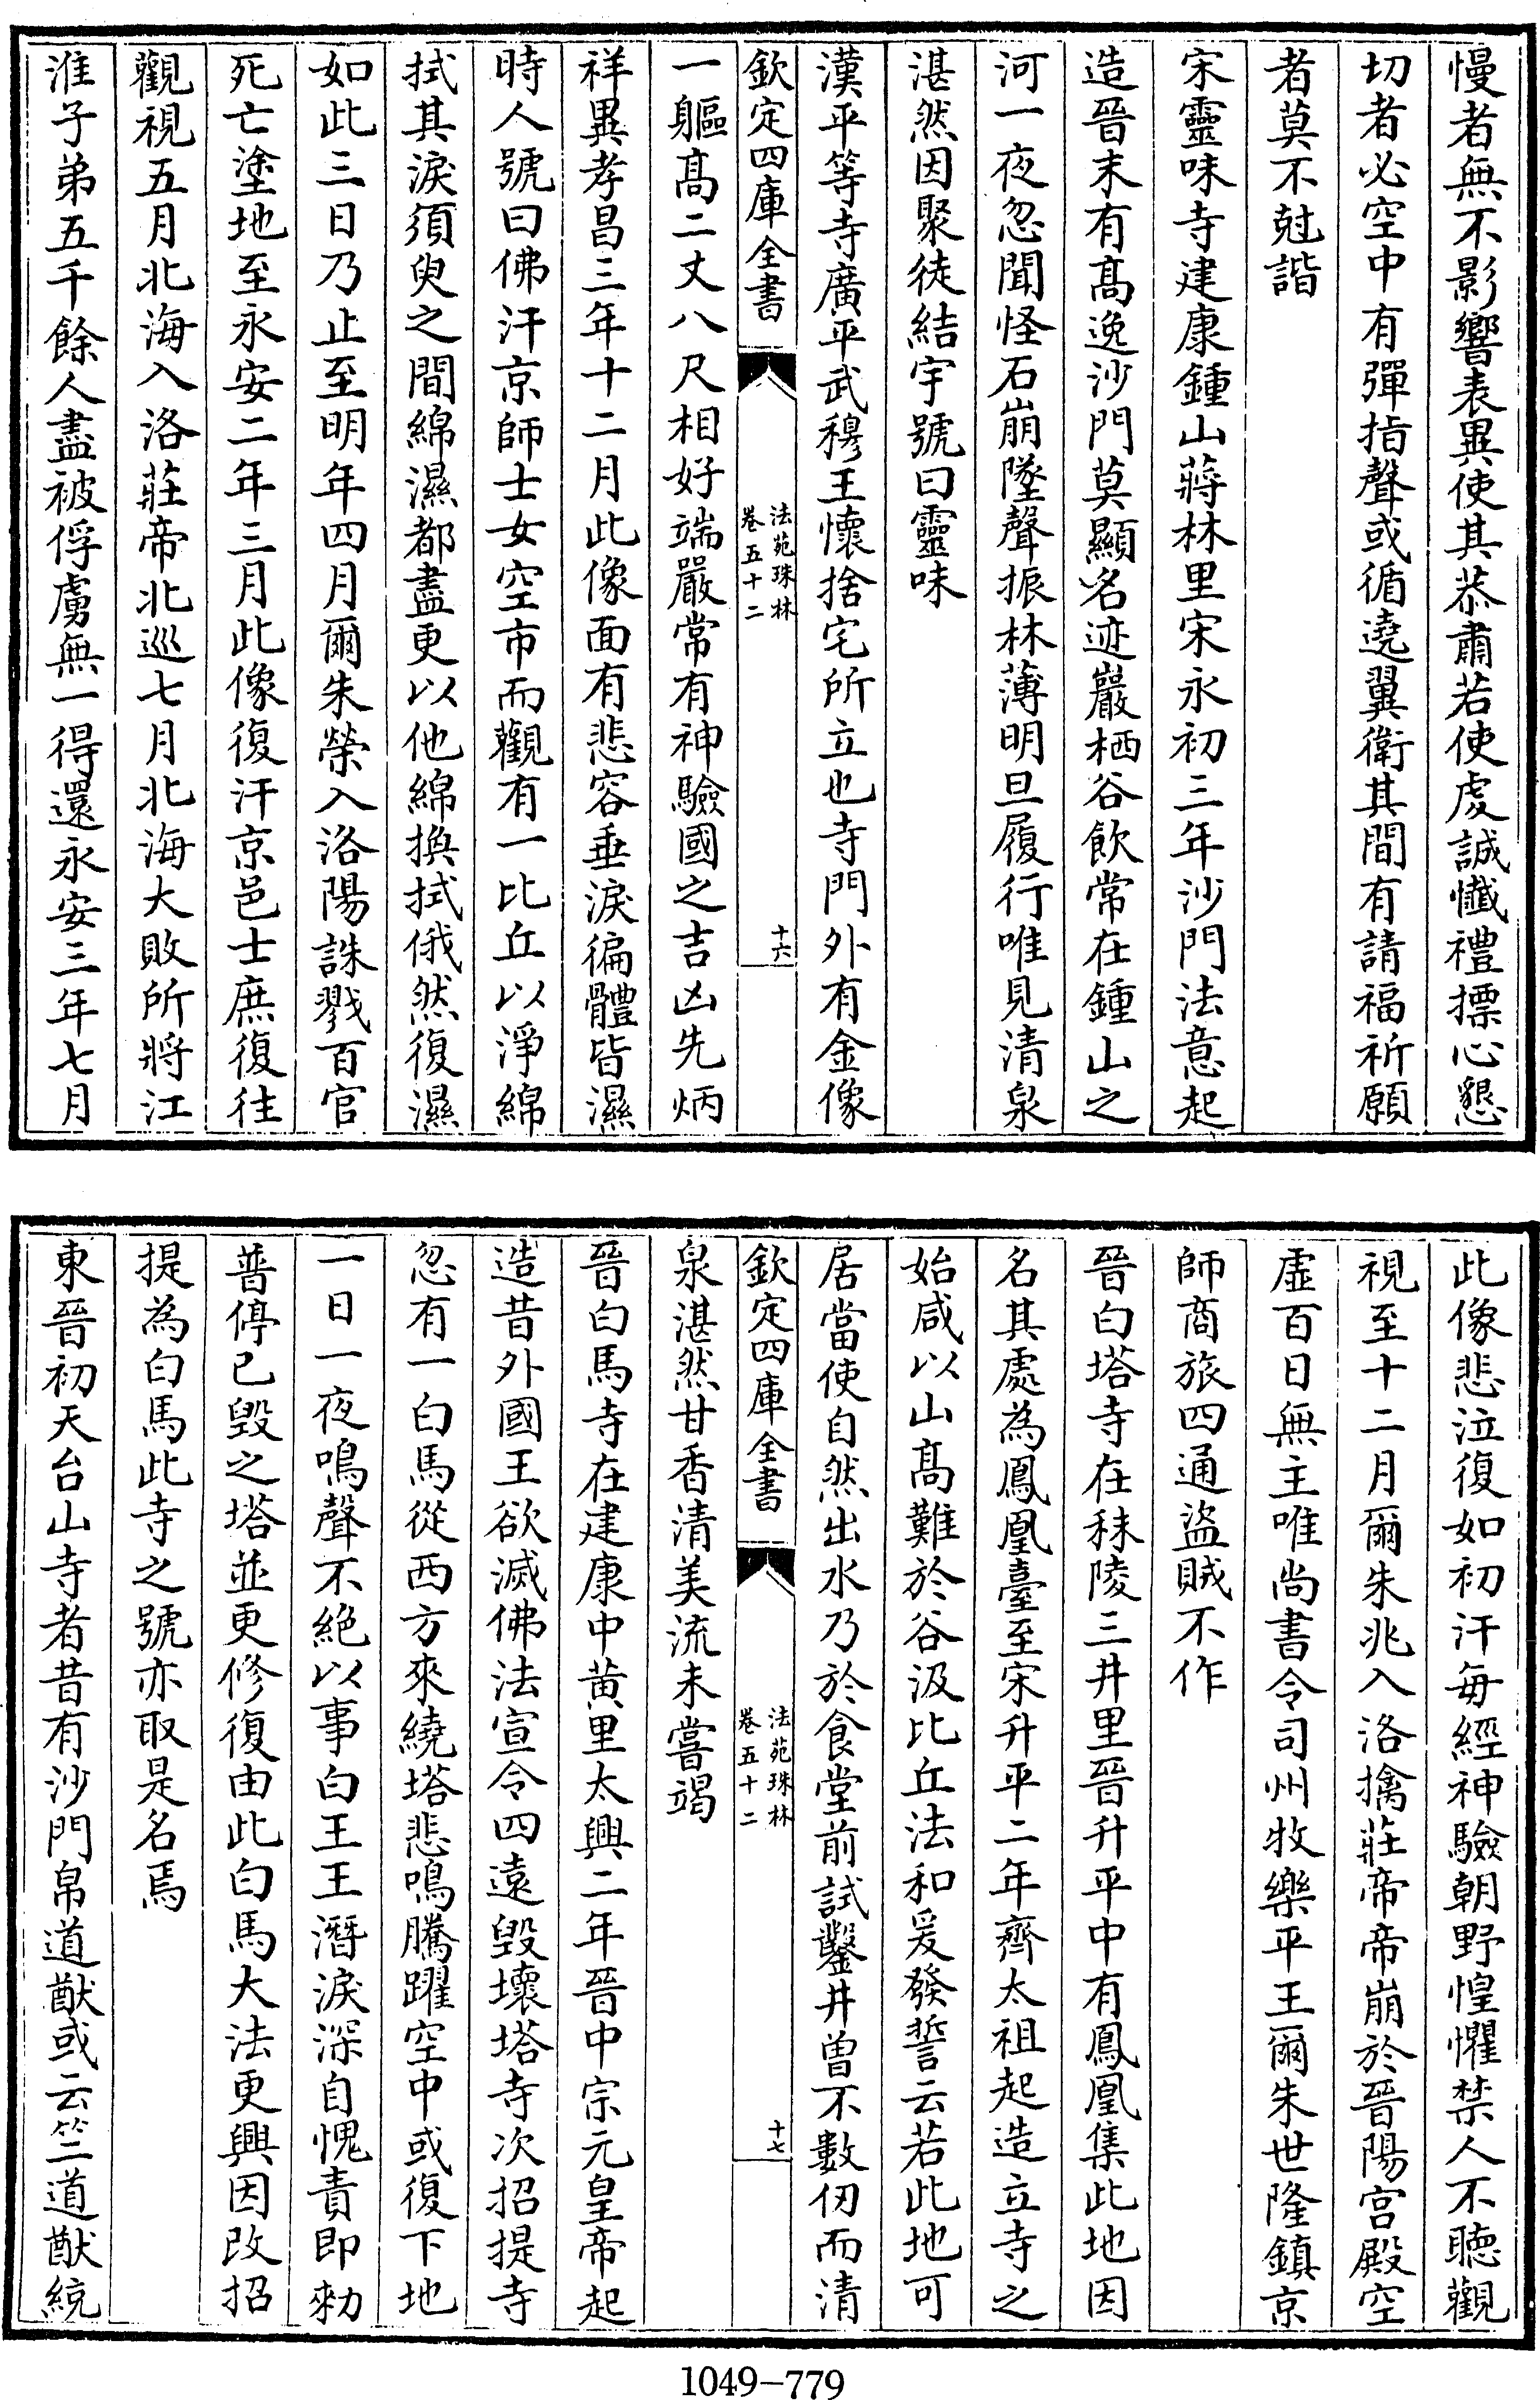 慢者無不影響表異使其恭肅若使虔誠懺禮摽心懇
切者必空中有彈指聲或循遶翼衛其間有請福祈願
者莫不尅諧
宋靈味寺建康鍾山蔣林里宋永初三年沙門法意起
造晉末有髙逸沙門莫顯名迹巖栖谷飲常在鍾山之
河一夜忽聞怪石崩墜聲振林薄明旦履行唯見清泉
湛然因聚徒結宇號曰靈味
漢平等寺廣平武穆王懷捨宅所立也寺門外有金像
欽定四庫全書
法苑珠林
卷五十二
十六
一軀髙二丈八尺相好端嚴常有神驗國之吉凶先炳
祥異孝昌三年十二月此像面有悲容垂淚徧體皆濕
時人號曰佛汗京師士女空市而觀有一比丘以淨綿
拭其淚須臾之間綿濕都盡更以他綿換拭俄然復濕
如此三日乃止至明年四月爾朱榮入洛陽誅戮百官
死亡塗地至永安二年三月此像復汗京邑士庶復往
觀視五月北海入洛莊帝北巡七月北海大敗所將江
淮子弟五千餘人盡被俘虜無一得還永安三年七月
此像悲泣復如初汗每經神驗朝野惶懼禁人不聽觀
視至十二月爾朱兆入洛擒莊帝帝崩於晉陽宫殿空
虛百日無主唯尚書令司州牧樂平王爾朱世隆鎮京
師商旅四通盜賊不作
晉白塔寺在秣陵三井里晉升平中有鳳凰集此地因
名其處為鳳凰臺至宋升平二年齊太祖起造立寺之
始咸以山髙難於谷汲比丘法和爰發誓云若此地可
居當使自然出水乃於食堂前試鑿井曾不數仞而清
欽定四庫全書
法苑珠林
卷五十二
十七
泉湛然甘香清美流未嘗竭
晉白馬寺在建康中黄里太興二年晉中宗元皇帝起
造昔外國王欲滅佛法宣令四遠毀壞塔寺次招提寺
忽有一白馬從西方來繞塔悲鳴騰躍空中或復下地
一日一夜鳴聲不絶以事白王王潛淚深自愧責即勑
普停已毀之塔並更修復由此白馬大法更興因改招
提為白馬此寺之號亦取是名焉
東晉初天台山寺者昔有沙門帛道猷或云竺道猷統
1049-779